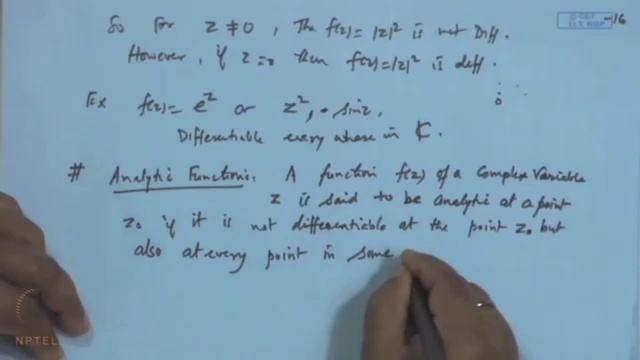 So For z ≠ 0, The f(z) = |z|² is not Diff.
However, if z=0 then f(z)=|z|² is diff.
Ex f(z) = e^z or z², sinz
Differentiable every where in ₵.
# Analytic Function: A function f(z) of a Complex Variable
z is said to be analytic at a point
z₀ if it is not differentiable at the point z₀ but
also at every point in some
NPTEL